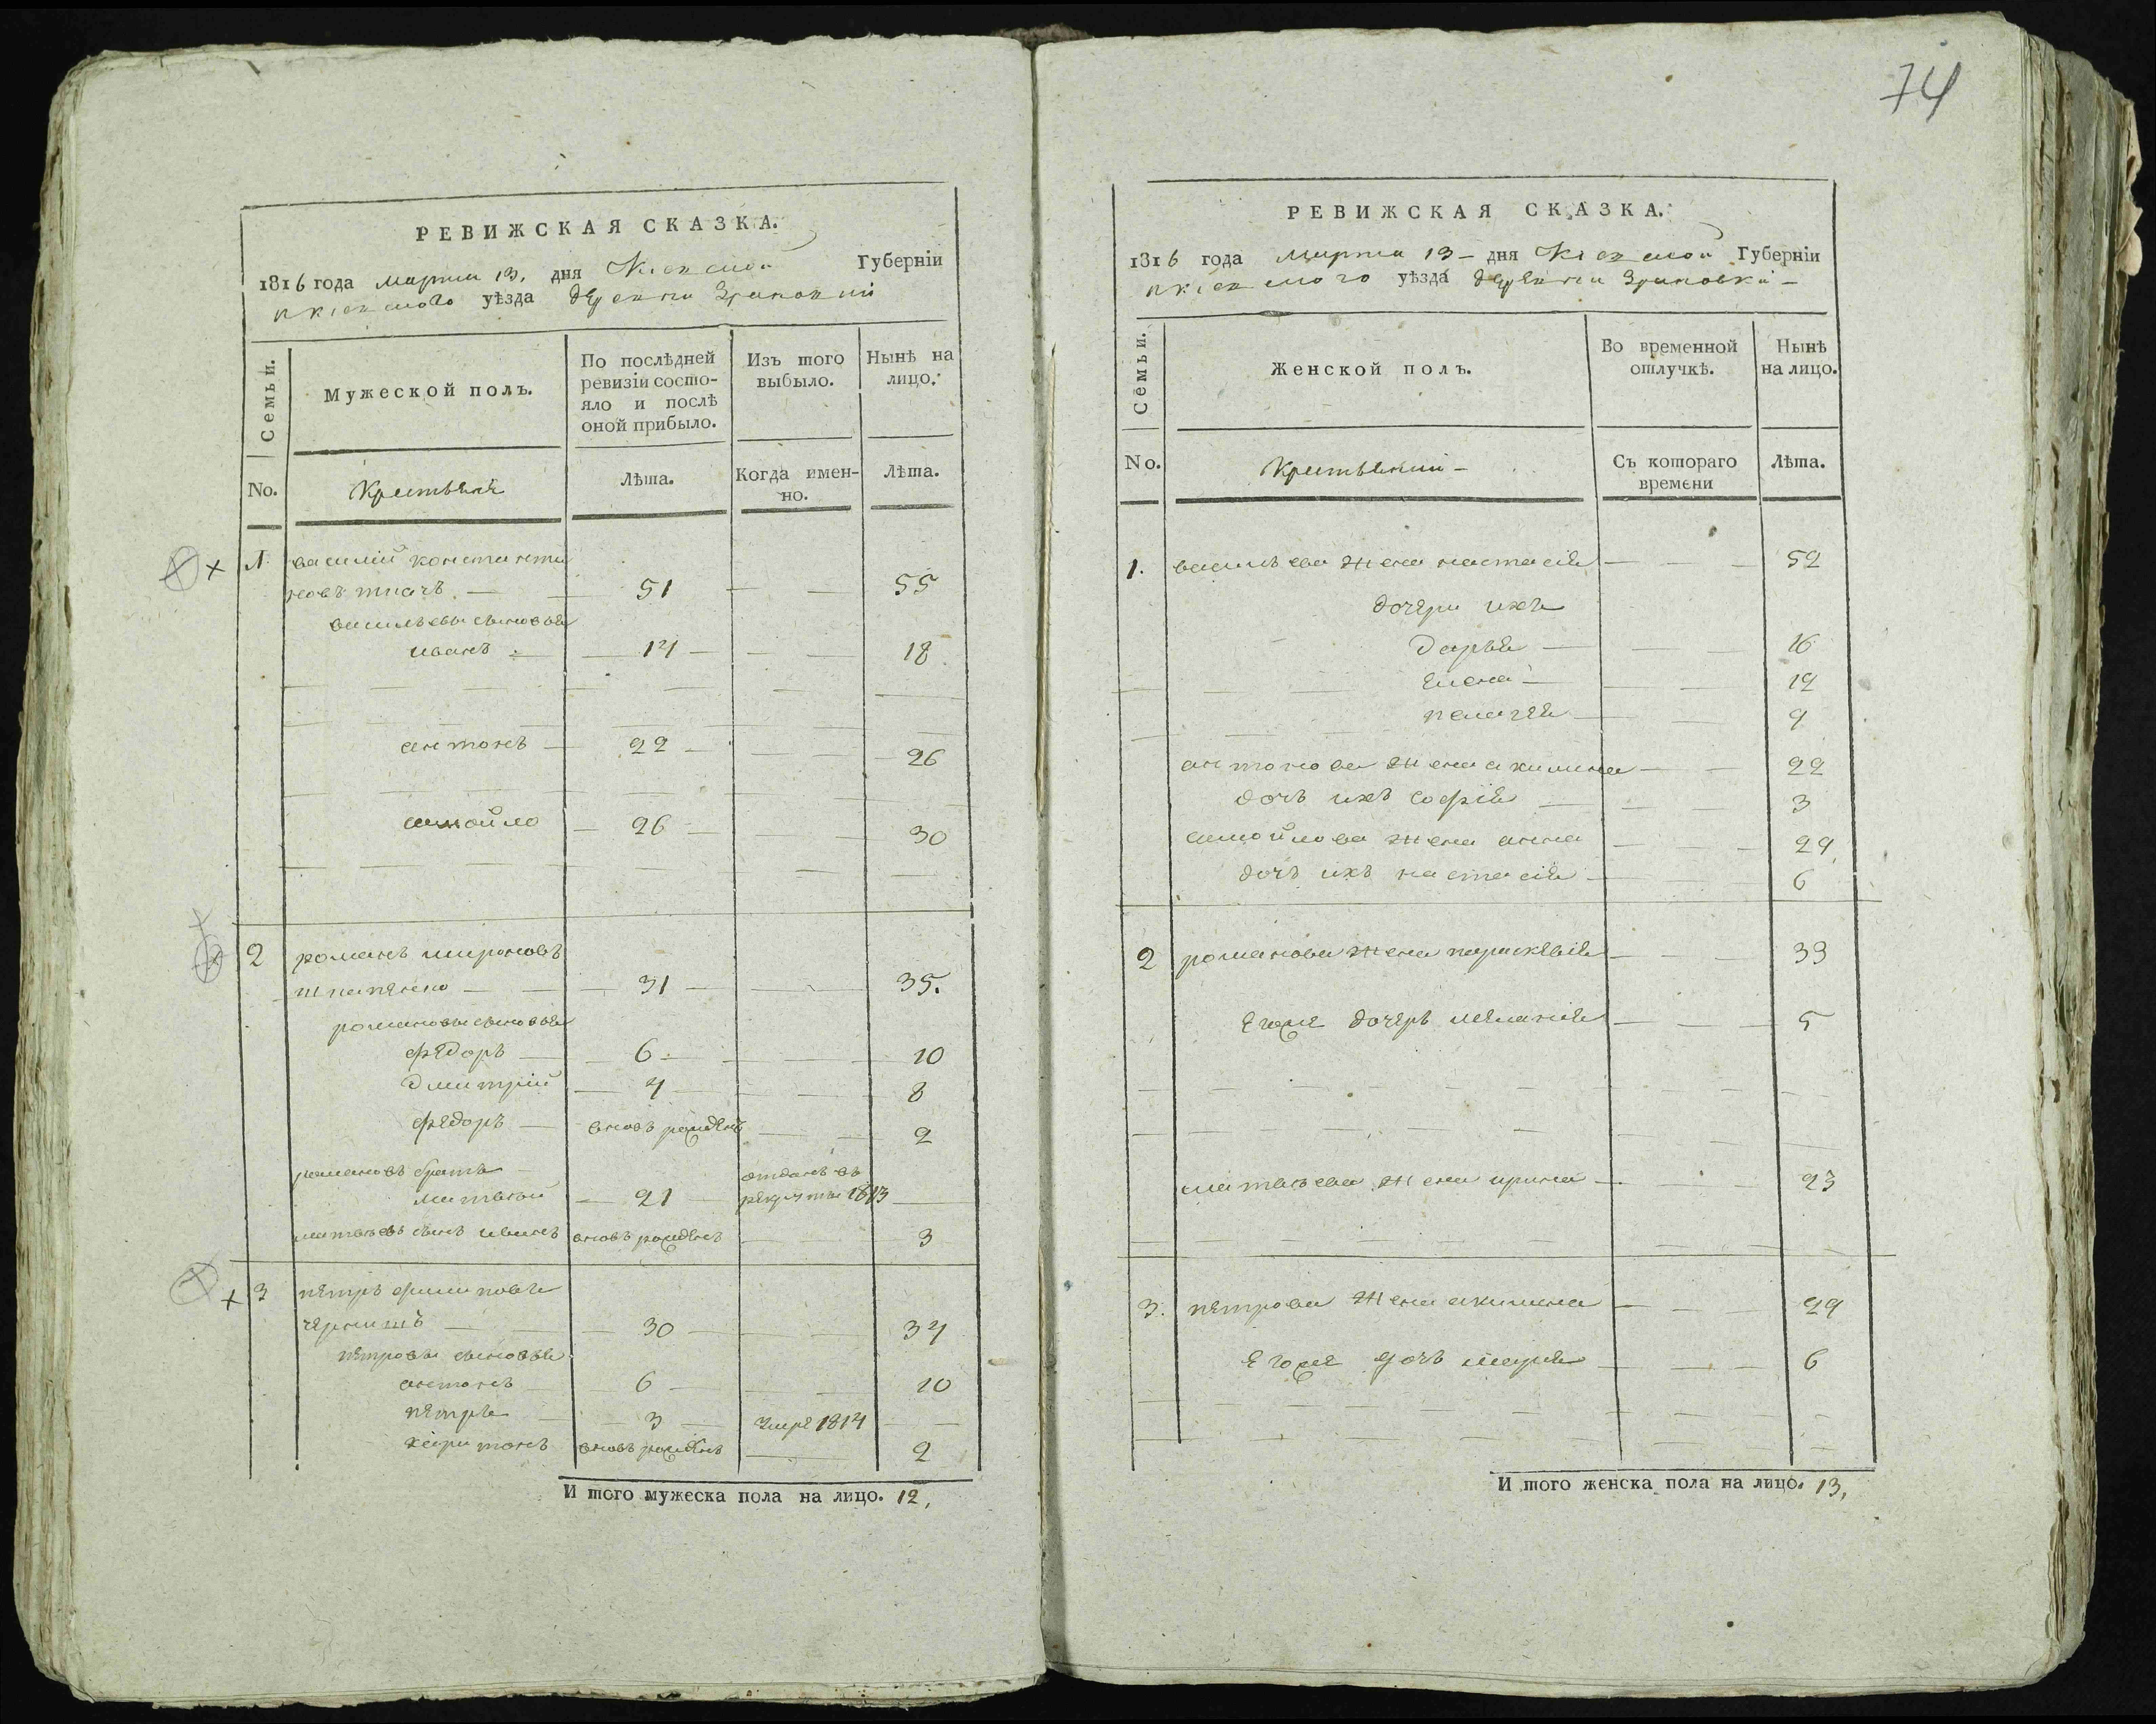 74
РЕВИЖСКАЯ СКАЗКА.
1816 года марта 13, дня Киевской Губерніи
Киевского уѣзда деревни
Семьи.
Мужеской полъ.
По послѣдней ревизіи состояло и послѣ оной прибыло.
Изъ того выбыло.
Нынѣ на лицо.
No.
Крестьяне
Лѣта.
Когда именно.
Лѣта.
1. василий константи
новъ ткачъ 51 55
васильевы сыновья
иванъ 14 18
антонъ 22 26
самойло 26 30
2 романъ мироновъ
31 35.
романовы сыновья
федоръ 6 10
дмитрій 4 8
федоръ вновь рожденъ 2
романовъ братъ отданъ въ
матвей 21 рекруты 1813
матвеевъ сынъ иванъ вновь рожденъ 3
3 петръ филиповъ
30 34
петровы сыновья
антонъ 6 10
петръ 3 умре 1814
харитонъ вновь рожденъ 2
И того мужеска пола на лицо. 12,
РЕВИЖСКАЯ СКАЗКА.
1816 года марта 13 дня Киевской Губерніи
Киевского уѣзда деревни
Семьи.
Женской полъ.
Во временной отлучкѣ.
Нынѣ на лицо.
No.
Съ котораго времени
Лѣта.
1. васильева жена настасія 52
дочери ихъ
дарья 16
елена 12
пелагея 9
антонова жена акилина 22
дочь ихъ софія 3
самойлова жена анна 29
дочь ихъ настасія 6
2 романова жена параскевія 33
егоже дочерь меланія 5
матвеева жена ирина 23
3. петрова жена акилина 29
егоже дочь марія 6
И того женска пола на лицо. 13,